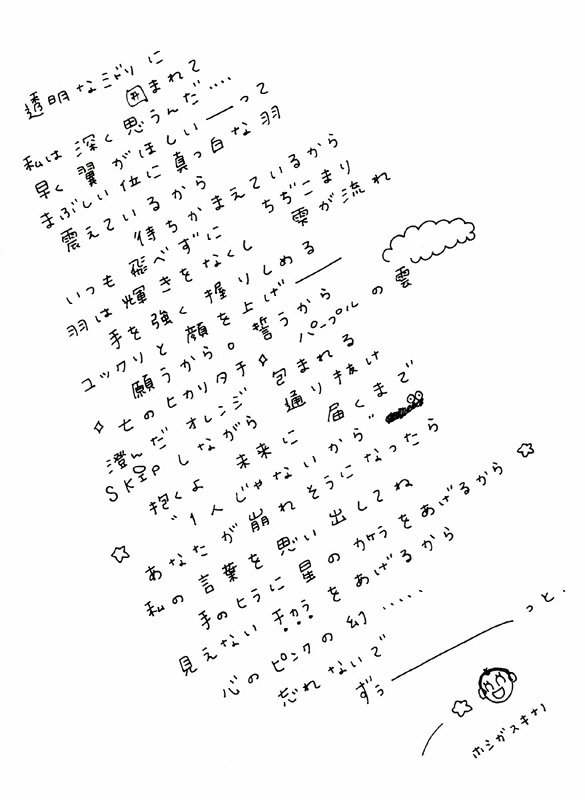 透明なミドリに
囲まれて
私は深く思うんだ‥‥
早く翼がほしい――って
まぶしい位に真っ白な羽
震えているから
待ちかまえているから
いつも飛べずに ちぢこまり
羽は輝きをなくし 雫が流れ
手を強く握りしめる
ユックリと顔を上げ――
願うから。誓うから
七のヒカリタチ パープルの雲
澄んだオレンジ 包まれる
SKIPしながら 通り抜け
抱くよ 未来に 届くまで
“1人じゃないから”
あなたが崩れそうになったら
私の言葉を思い出してね
手のヒラに星のカケラをあげるから
見えないチカラをあげるから
心のピンクの幻‥‥‥
忘れないで
ずぅ――――っと.
ホシガスキナノ